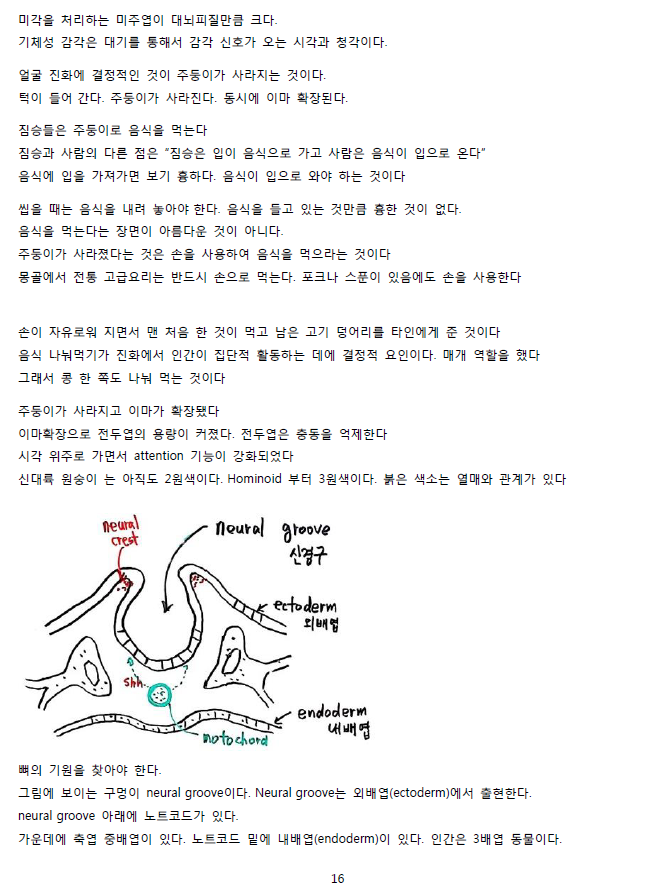 미각을 처리하는 미주엽이 대뇌피질만큼 크다.
기체성 감각은 대기를 통해서 감각 신호가 오는 시각과 청각이다.
얼굴 진화에 결정적인 것이 주둥이가 사라지는 것이다.
턱이 들어 간다. 주둥이가 사라진다. 동시에 이마 확장된다.
짐승들은 주둥이로 음식을 먹는다
짐승과 사람의 다른 점은 “짐승은 입이 음식으로 가고 사람은 음식이 입으로 온다”
음식에 입을 가져가면 보기 흉하다. 음식이 입으로 와야 하는 것이다
씹을 때는 음식을 내려 놓아야 한다. 음식을 들고 있는 것만큼 흉한 것이 없다.
음식을 먹는다는 장면이 아름다운 것이 아니다.
주둥이가 사라졌다는 것은 손을 사용하여 음식을 먹으라는 것이다
몽골에서 전통 고급요리는 반드시 손으로 먹는다. 포크나 스푼이 있음에도 손을 사용한다
손이 자유로워 지면서 맨 처음 한 것이 먹고 남은 고기 덩어리를 타인에게 준 것이다
음식 나눠먹기가 진화에서 인간이 집단적 활동하는 데에 결정적 요인이다. 매개 역할을 했다
그래서 콩 한 쪽도 나눠 먹는 것이다
주둥이가 사라지고 이마가 확장됐다
이마확장으로 전두엽의 용량이 커졌다. 전두엽은 충동을 억제한다
시각 위주로 가면서 attention 기능이 강화되었다
신대륙 원숭이 는 아직도 2원색이다. Hominoid 부터 3원색이다. 붉은 색소는 열매와 관계가 있다
neural crest
neural groove
신경구
ectoderm
외배엽
shh.
endoderm
내배엽
notochord
뼈의 기원을 찾아야 한다.
그림에 보이는 구멍이 neural groove이다. Neural groove는 외배엽(ectoderm)에서 출현한다.
neural groove 아래에 노트코드가 있다.
가운데에 축엽 중배엽이 있다. 노트코드 밑에 내배엽(endoderm)이 있다. 인간은 3배엽 동물이다.
16